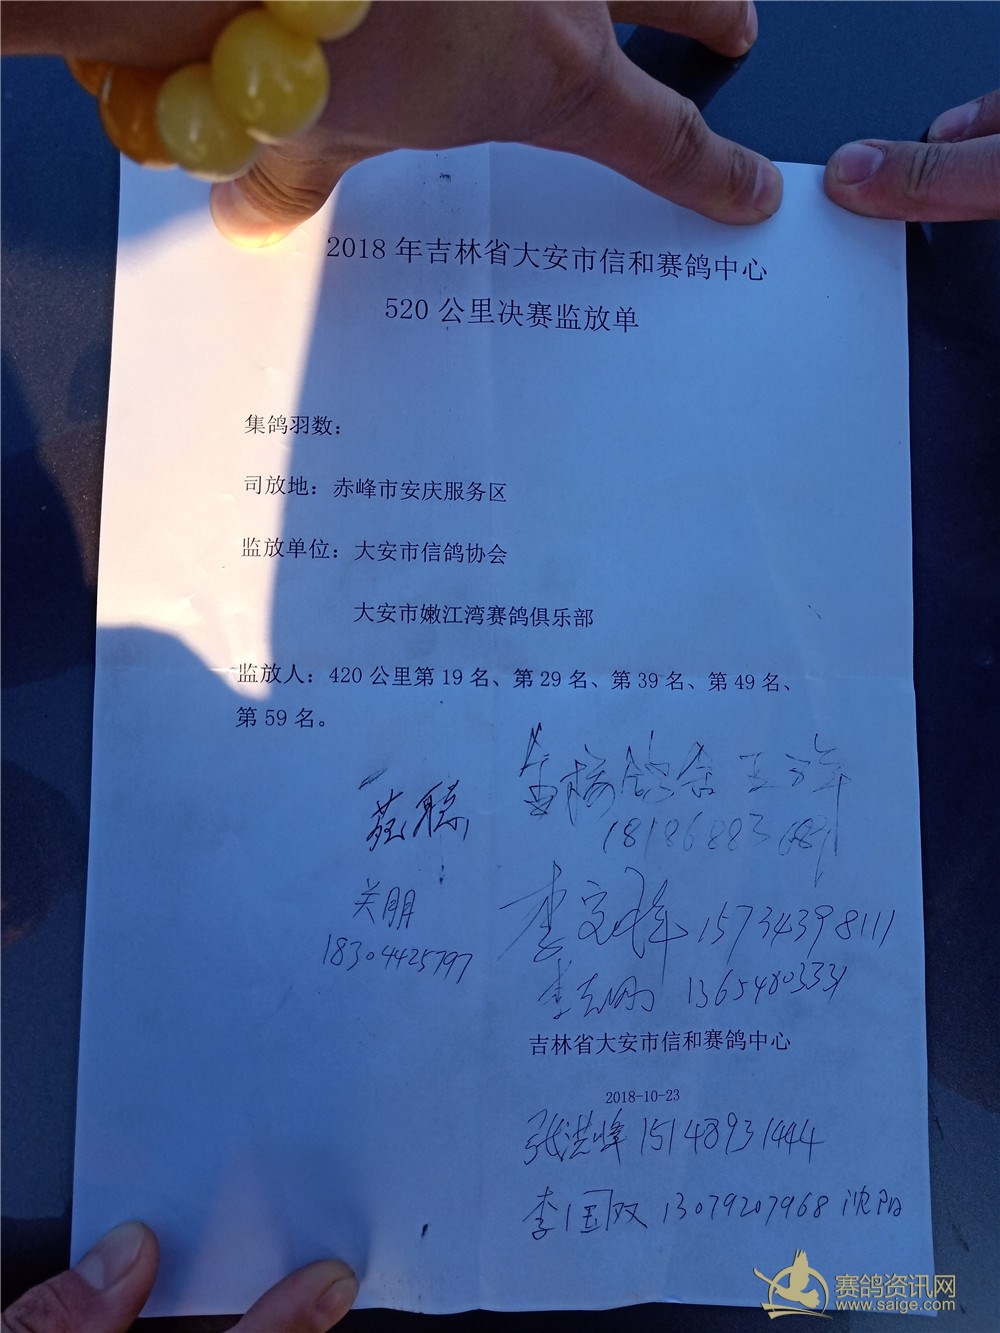 2018 年吉林省大安市信和赛鸽中心
520 公里决赛监放单
集鸽羽数：
司放地：赤峰市安庆服务区
监放单位：大安市信鸽协会
大安市嫩江湾赛鸽俱乐部
监放人：420 公里第 19 名、第 29 名、第 39 名、第 49 名、
第 59 名。
鸽舍
聪
关朋
18304425797
李 15734398111
李志刚 13654803331
吉林省大安市信和赛鸽中心
2018-10-23
张洪峰 15148931444
李国双 13079207968 沈阳
赛鸽资讯网
www.saige.com